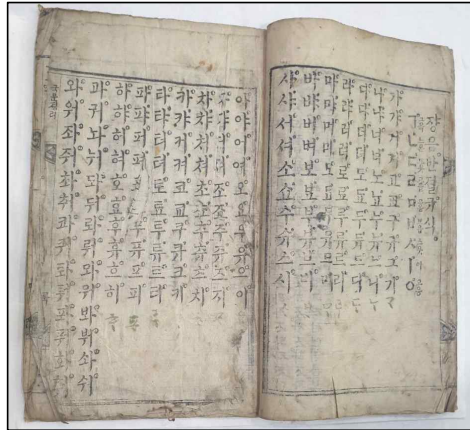 쟝음반졀규식
ㄱㄴㄷㄹㅁㅂㅅㅣㅇ
가갸거겨고교구규그기
나냐너녀노뇨누뉴느니
다댜더뎌도됴두듀드디
라랴러려로료루류르리
마먀머며모묘무뮤므미
바뱌버벼보뵤부뷰브비
사샤서셔소쇼수슈스시
아야어여오요우유으이
자쟈저져조죠주쥬즈지
차챠처쳐초쵸추츄츠치
카캬커켜코쿄쿠큐크키
타탸터텨토툐투튜트티
파퍄퍼펴포표푸퓨프피
하햐허혀호효후휴흐히
과궈놔눠돠둬롸뤄와워봐붜솨숴
와워좌줘촤춰콰쿼톼퉈퐈풔화훠